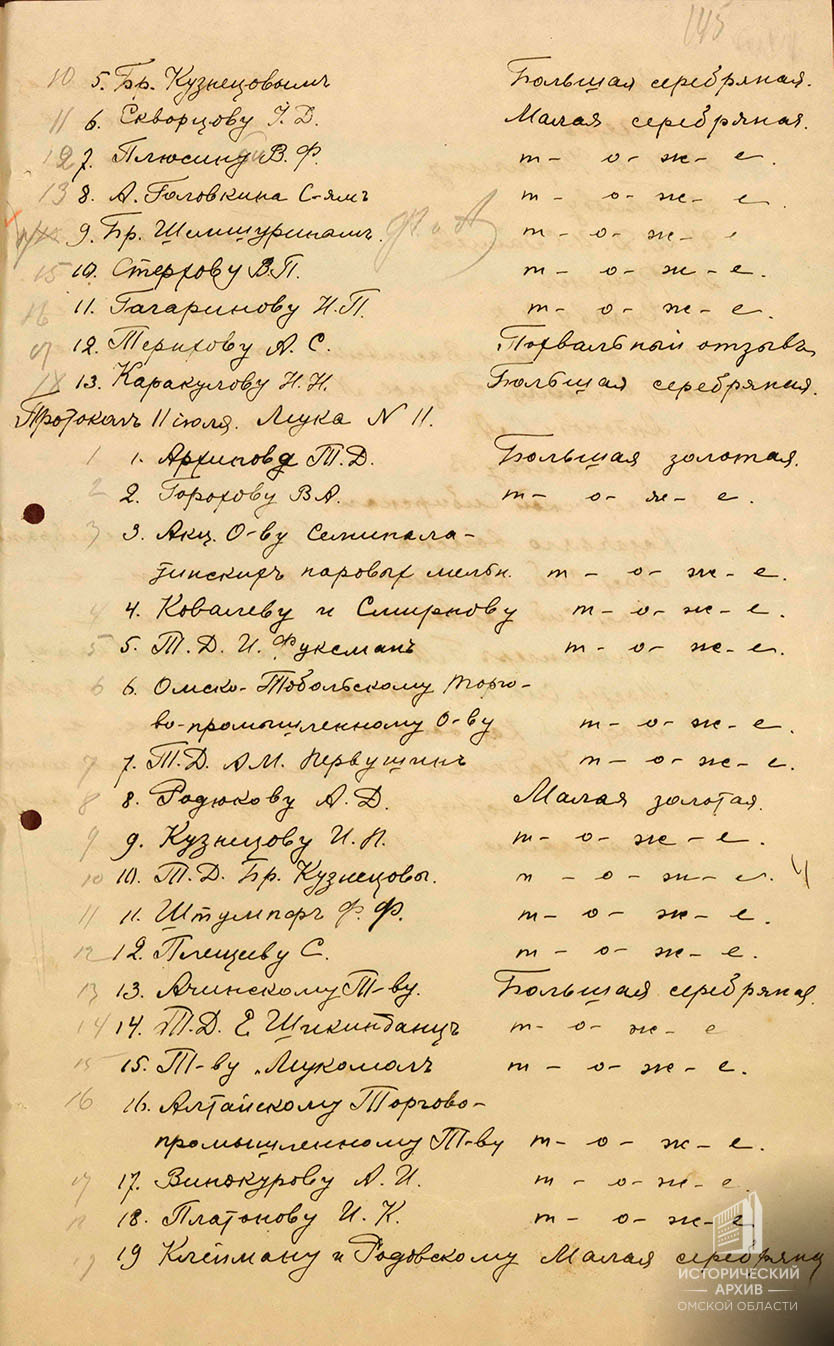 145
10 5. Бр. Кузнецовымъ Большая серебряная.
11 6. Скворцову I. Д. Малая серебряная.
12 7. Плюсину В. Ф. т - о - ж - е.
13 8. А. Головкина С-ямъ т - о - ж - е.
9. Бр. Шемшуринамъ. т - о - ж - е
15 10. Стерхову В. П. т - о - ж - е.
16 11. Гагаринову Н. П. т - о - ж - е.
17 12. Терихову А. С. Похвальный отзывъ
18 13. Каракулову Н. Н. Большая серебряная.
Протоколъ 11 iюля. Мука N 11.
1 1. Архипова Т. Д. Большая золотая.
2 2. Горохову В. А. т - о - ж - е.
3 3. Акц. О-ву Семипала-
тинскихъ паровых мельн. т - о - ж - е.
4 4. Ковалеву и Смирнову т - о - ж - е.
5 5. Т. Д. И. Фуксманъ т - о - ж - е.
6 6. Омско-Тобольскому Торго-
во-промышленному О-ву т - о - ж - е.
7 7. Т. Д. А. М. Первушинъ т - о - ж - е.
8 8. Родюкову А. Д. Малая золотая.
9 9. Кузнецову И. П. т - о - ж - е.
10 10. Т. Д. Бр. Кузнецовы. т - о - ж - е.
11 11. Штумпфъ Ф. Ф. т - о - ж - е.
12 12. Плещеву С. т - о - ж - е.
13 13. Ачинскому Т-ву. Большая серебряная.
14 14. Т. Д. Е. т - о - ж - е
15 15. Т-ву „Мукомолъ т - о - ж - е.
16 16. Алтайскому Торгово-
промышленному Т-ву т - о - ж - е.
17 17. Винокурову А. И. т - о - ж - е.
18 18. Платонову И. К. т - о - ж - е
19 19 Клейману и Родовскому Малая серебряна
ИСТОРИЧЕСКИЙ
АРХИВ
ОМСКОЙ ОБЛАСТИ